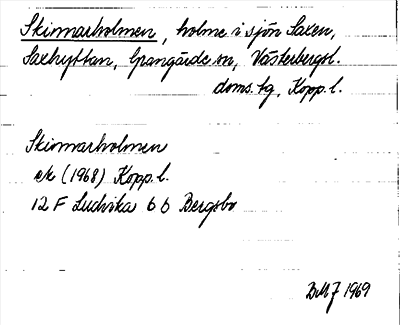 Skinnarholmen, holme i sjön Saxen,
Saxhyttan, Grangärde sn, Västerbergsl.
doms.hg, Kopp.l.
Skinnarholmen
ek (1968) Kopp.l.
12 F Ludvika 6 b Bergsbo
BMJ 1969